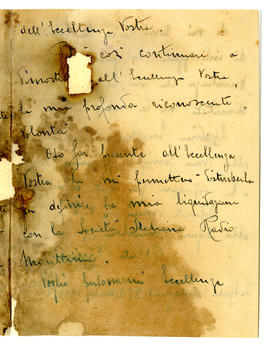 dell'Eccellenza Vostra.
così continuare a
dimostrare all'Eccellenza Vostra,
la mia profonda riconoscente
volontà
Oso far presente all'Eccellenza
Vostra che mi
definire la mia liquidazione
con la Società Italiana Radio
Marittima.
Voglia perdonarmi Eccellenza